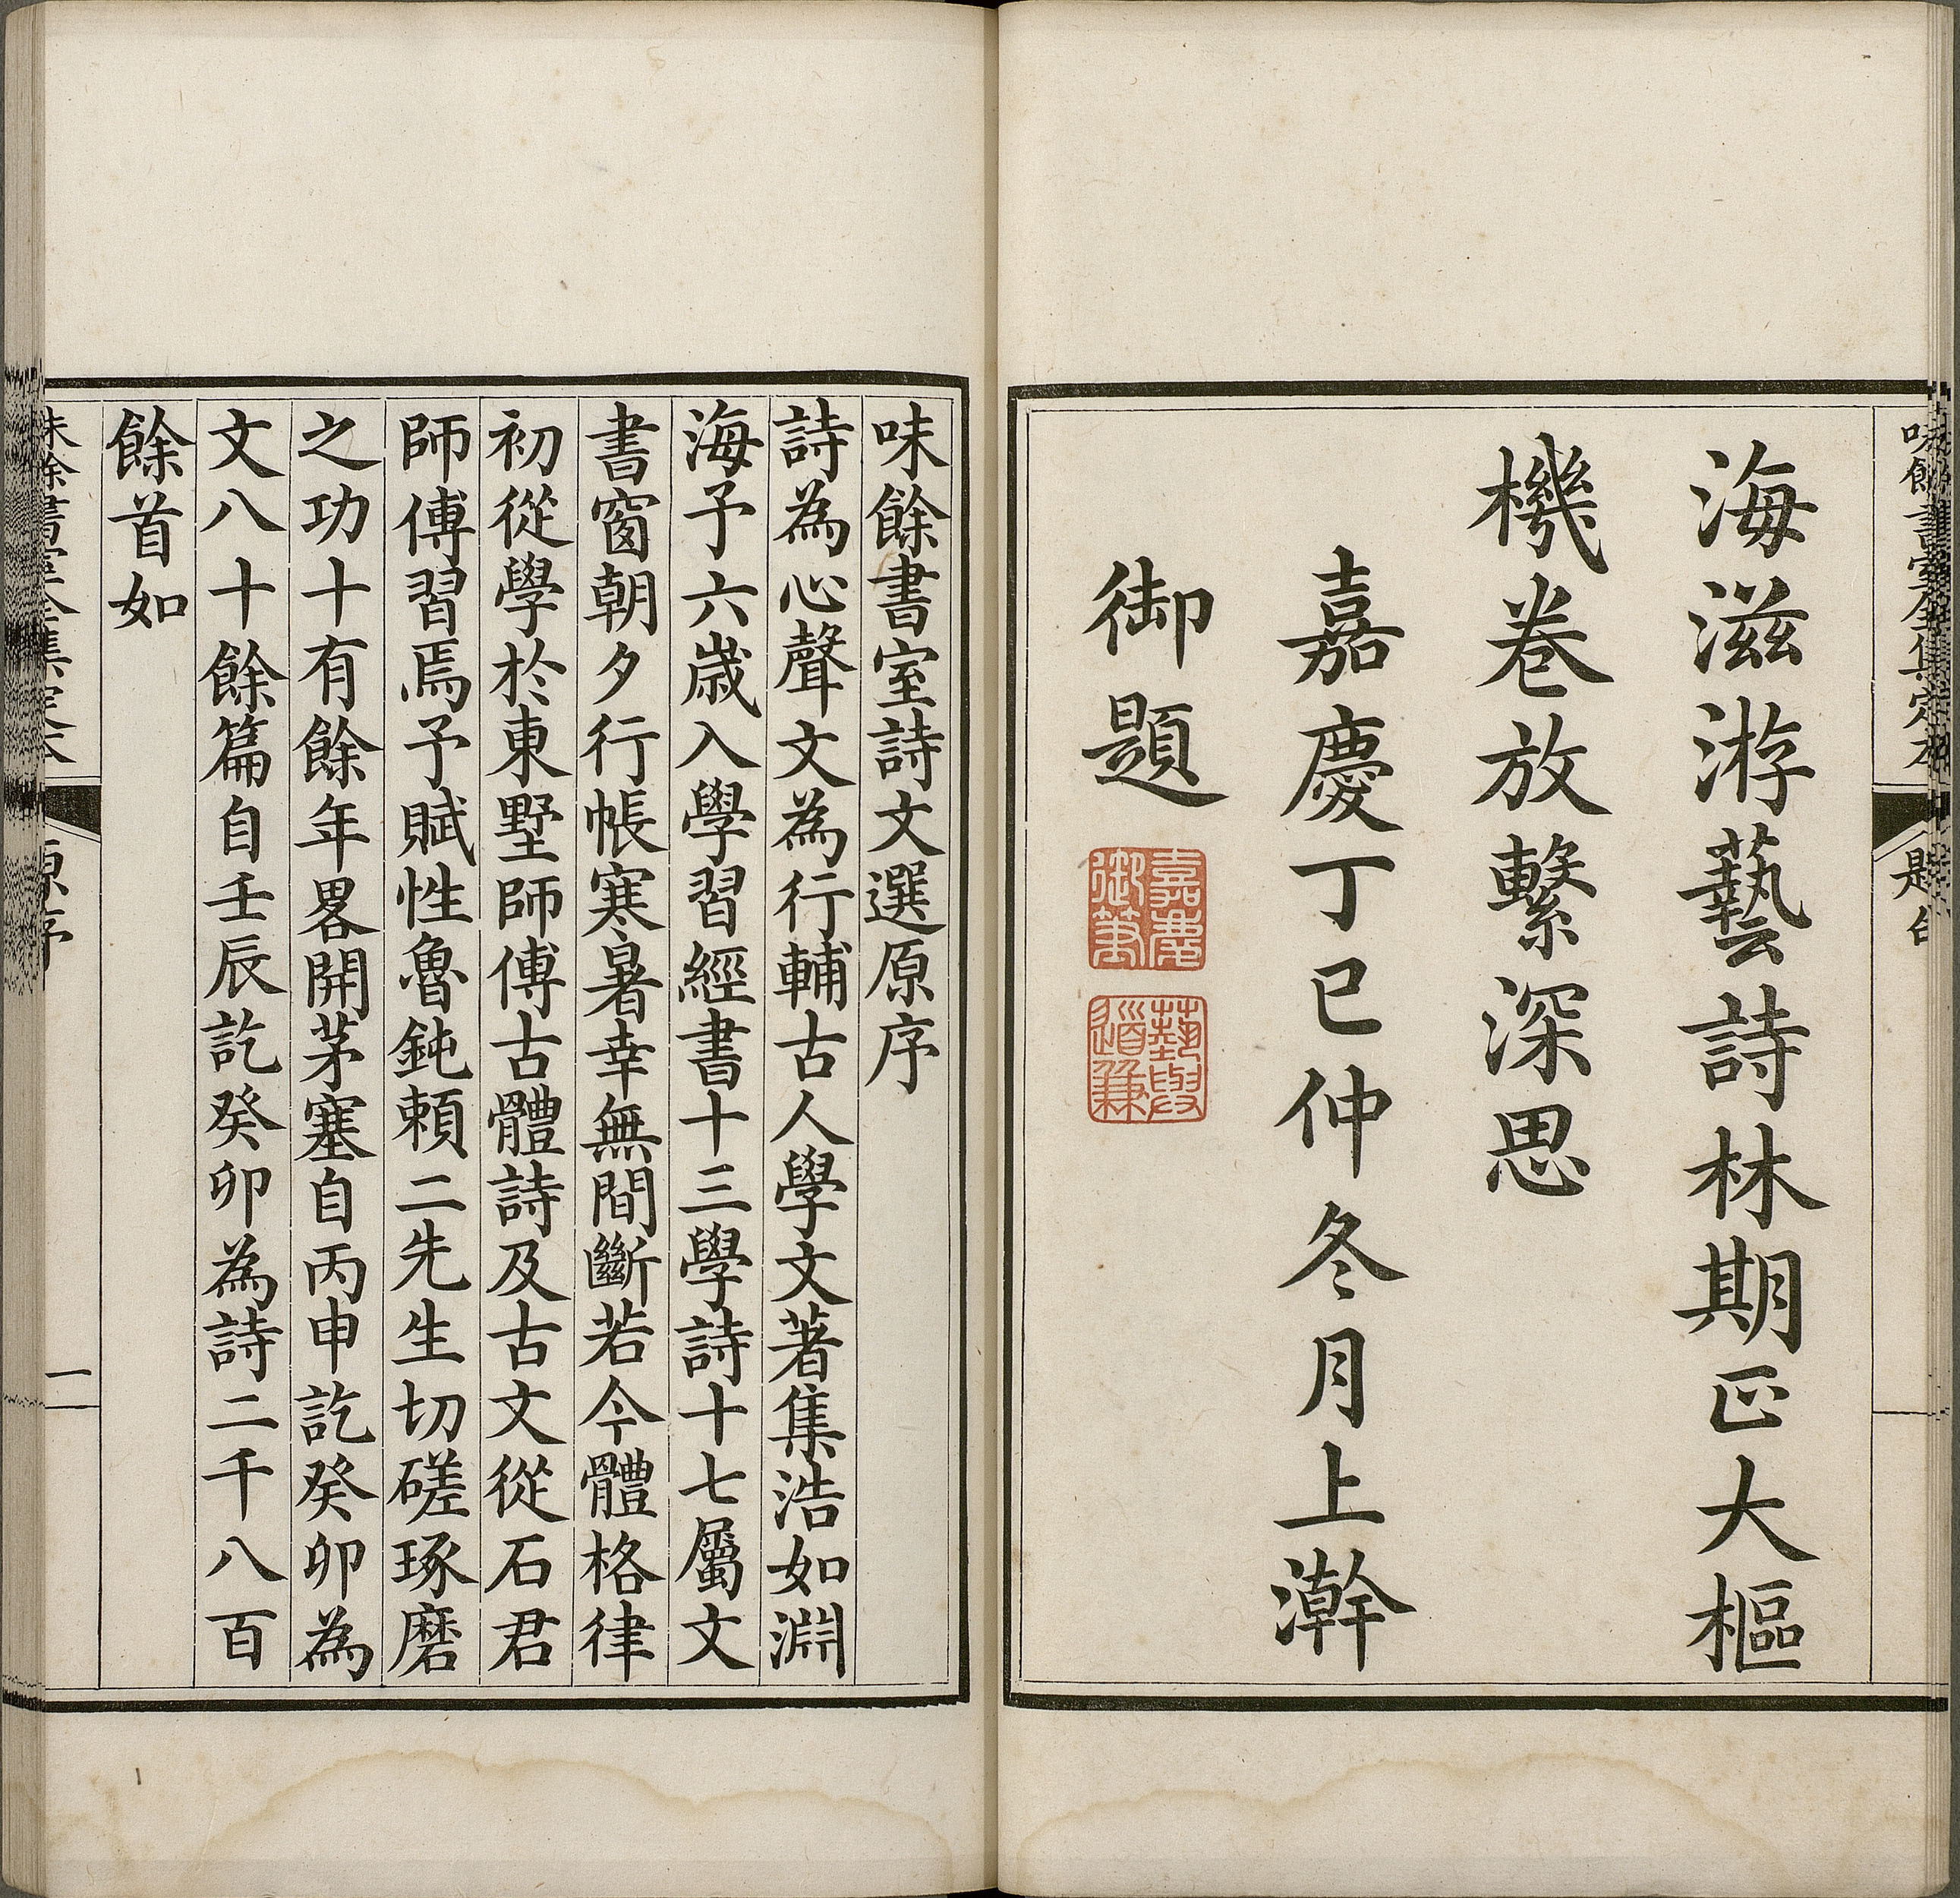 味餘書室全集定本
題
海滋游藝詩林期正大樞
機卷放繫深思
嘉慶丁巳仲冬月上澣
御題
嘉慶
御筆
味餘書室詩文選原序
詩為心聲文為行輔古人學文著集浩如淵
海予六歲入學習經書十三學詩十七屬文
書窗朝夕行帳寒暑幸無間斷若今體格律
初從學於東墅師傅古體詩及古文從石君
師傅習焉予賦性魯鈍賴二先生切磋琢磨
之功十有餘年畧開茅塞自丙申訖癸卯為
文八十餘篇自壬辰訖癸卯為詩二千八百
餘首如
味餘書室全集定本
原序
一